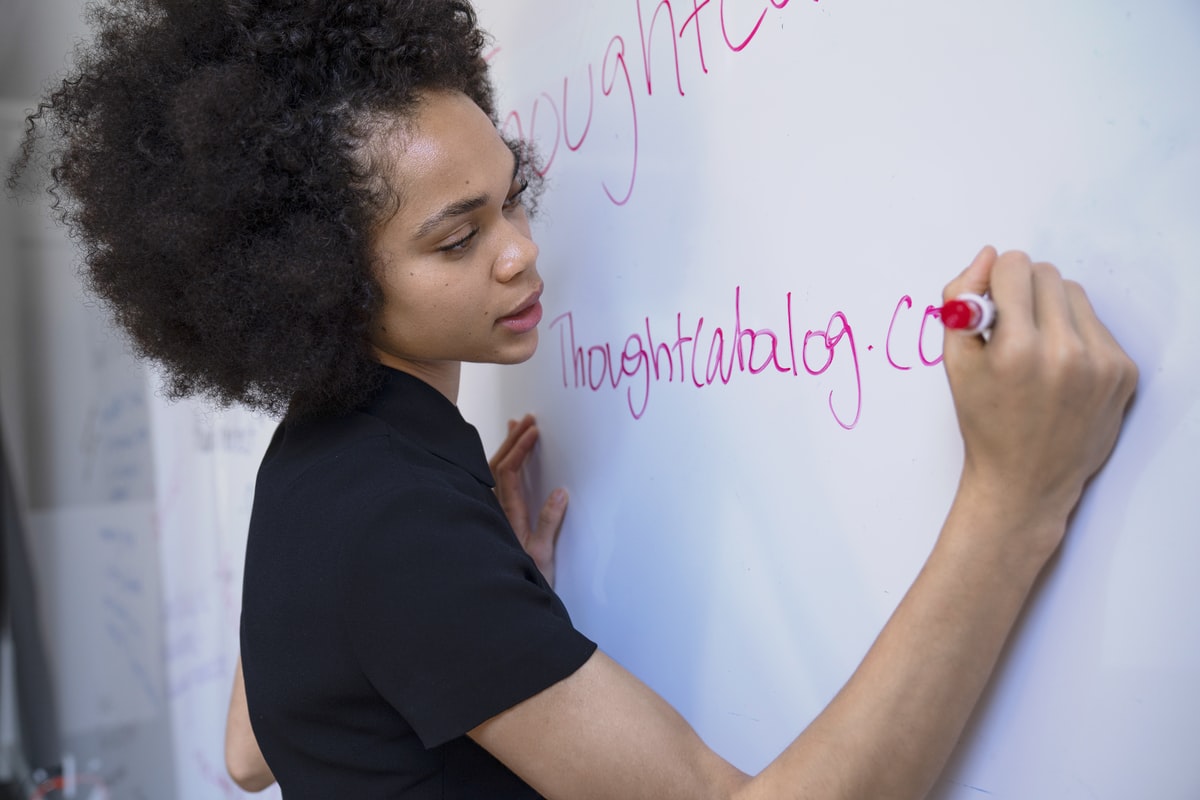 ThoughtCa
Thoughtcatabalog.co